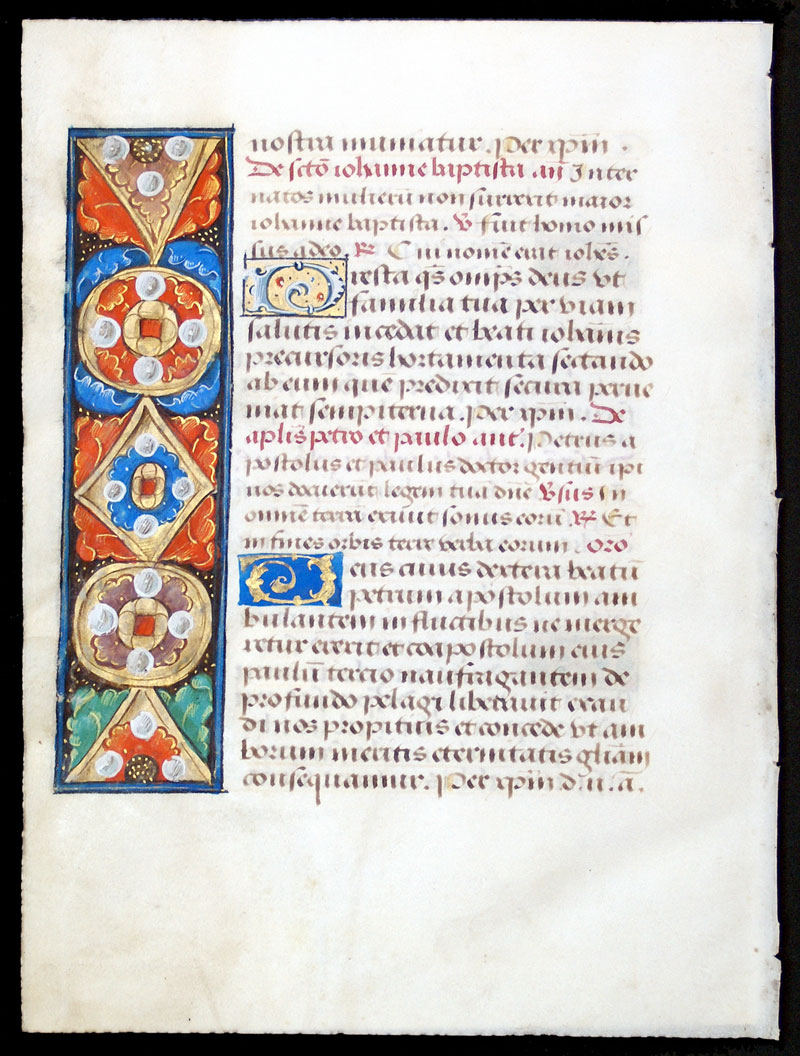 nostra muniatur. Per xp̄m .
De sctō iohanne baptista. an̄ Inter
natos mulierū non surrexit maior
iohanne baptista. ℣ fuit homo mis
sus a deo. ℟ Cui nomē erat iohēs.
Presta qs̄ omp̄s deus vt
familia tua per viam
salutis incedat et beati iohannis
precursoris hortamenta sectando
ab eum quē predixit secura perue
niat sempiterna. Per xp̄m. De
aplīs petro et paulo ant̄. Petrus a
postolus et paulus doctor gentiū ipi
nos docuerūt legem tuā dn̄e ℣sus In
omnē terrā exiuit sonus eorū ℟ Et
in fines orbis terre verba eorum. Oro
Deus cuius dextera beatū
petrum apostolum am
bulantem in fluctibus ne merge
retur erexit et coapostolum eius
paulū tercio naufragantem de
profundo pelagi liberauit exau
di nos propitius et concede vt am
borum meritis eternitatis gliām
consequamur. Per xp̄m d. n. a.